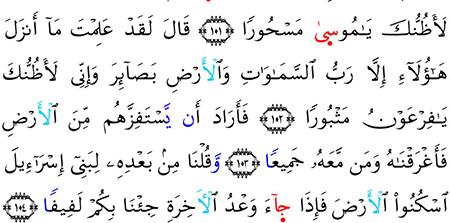 لَأَظُنُّكَ يَٰمُوسَىٰ مَسْحُورًا ﴿١٠١﴾ قَالَ لَقَدْ عَلِمْتَ مَآ أَنزَلَ
هَٰٓؤُلَآءِ إِلَّا رَبُّ ٱلسَّمَٰوَٰتِ وَٱلْأَرْضِ بَصَآئِرَ وَإِنِّى لَأَظُنُّكَ
يَٰفِرْعَوْنُ مَثْبُورًا ﴿١٠٢﴾ فَأَرَادَ أَن يَسْتَفِزَّهُم مِّنَ ٱلْأَرْضِ
فَأَغْرَقْنَٰهُ وَمَن مَّعَهُۥ جَمِيعًا ﴿١٠٣﴾ وَقُلْنَا مِنۢ بَعْدِهِۦ لِبَنِىٓ إِسْرَٰٓءِيلَ
ٱسْكُنُوا۟ ٱلْأَرْضَ فَإِذَا جَآءَ وَعْدُ ٱلْأَخِرَةِ جِئْنَا بِكُمْ لَفِيفًا ﴿١٠٤﴾